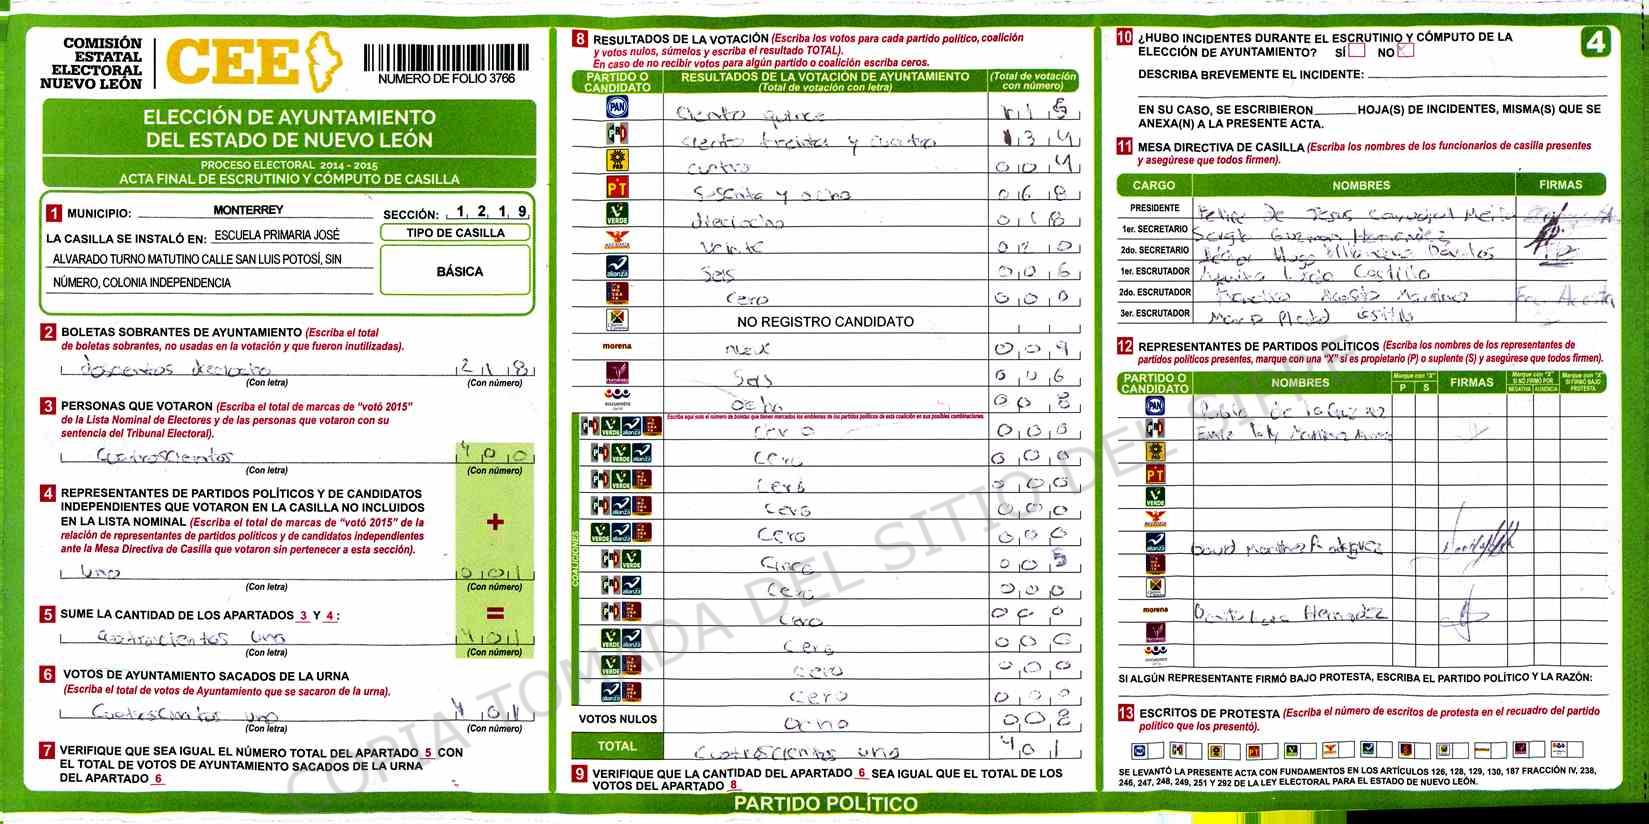 COMISIÓN
ESTATAL
ELECTORAL
NUEVO LEÓN
CEE
NUMERO DE FOLIO 3766
ELECCIÓN DE AYUNTAMIENTO
DEL ESTADO DE NUEVO LEÓN
PROCESO ELECTORAL 2014 - 2015
ACTA FINAL DE ESCRUTINIO Y CÓMPUTO DE CASILLA
1 MUNICIPIO: MONTERREY
SECCIÓN: 1 2 1 9
LA CASILLA SE INSTALÓ EN: ESCUELA PRIMARIA JOSÉ
ALVARADO TURNO MATUTINO CALLE SAN LUIS POTOSÍ, SIN
NÚMERO, COLONIA INDEPENDENCIA
TIPO DE CASILLA
BÁSICA
2 BOLETAS SOBRANTES DE AYUNTAMIENTO (Escriba el total
de boletas sobrantes, no usadas en la votación y que fueron inutilizadas).
doscientos dieciocho 2 1 8
(Con letra) (Con número)
3 PERSONAS QUE VOTARON (Escriba el total de marcas de "votó 2015"
de la Lista Nominal de Electores y de las personas que votaron con su
sentencia del Tribunal Electoral).
cuatroscientos 4 0 0
(Con letra) (Con número)
4 REPRESENTANTES DE PARTIDOS POLÍTICOS Y DE CANDIDATOS
INDEPENDIENTES QUE VOTARON EN LA CASILLA NO INCLUIDOS
EN LA LISTA NOMINAL (Escriba el total de marcas de "votó 2015" de la
relación de representantes de partidos políticos y de candidatos independientes
ante la Mesa Directiva de Casilla que votaron sin pertenecer a esta sección).
+
uno 0 0 1
(Con letra) (Con número)
5 SUME LA CANTIDAD DE LOS APARTADOS 3 Y 4:
=
cuatrocientos uno 4 0 1
(Con letra) (Con número)
6 VOTOS DE AYUNTAMIENTO SACADOS DE LA URNA
(Escriba el total de votos de Ayuntamiento que se sacaron de la urna).
cuatroscientos uno 4 0 1
(Con letra) (Con número)
7 VERIFIQUE QUE SEA IGUAL EL NÚMERO TOTAL DEL APARTADO 5 CON
EL TOTAL DE VOTOS DE AYUNTAMIENTO SACADOS DE LA URNA
DEL APARTADO 6
8 RESULTADOS DE LA VOTACIÓN (Escriba los votos para cada partido político, coalición
y votos nulos, súmelos y escriba el resultado TOTAL).
En caso de no recibir votos para algún partido o coalición escriba ceros.
PARTIDO O CANDIDATO
RESULTADOS DE LA VOTACIÓN DE AYUNTAMIENTO
(Total de votación con letra)
(Total de votación con número)
PAN ciento quince 1 1 5
PRI ciento treinta y cuatro 1 3 4
PRD cuatro 0 0 4
PT sesenta y ocho 0 6 8
VERDE dieciocho 0 1 8
veinte 0 2 0
alianza seis 0 0 6
cero 0 0 0
NO REGISTRO CANDIDATO
morena nueve 0 0 9
seis 0 0 6
ocho 0 0 8
COALICIONES
Escriba aquí solo el número de boletas que tienen marcados los emblemas de los partidos políticos de esta coalición en sus posibles combinaciones.
PRI VERDE alianza cero 0 0 0
PRI VERDE alianza cero 0 0 0
PRI VERDE cero 0 0 0
PRI alianza cero 0 0 0
VERDE alianza cero 0 0 0
PRI VERDE cinco 0 0 5
PRI alianza cero 0 0 0
PRI cero 0 0 0
VERDE alianza cero 0 0 0
VERDE cero 0 0 0
alianza cero 0 0 0
VOTOS NULOS ocho 0 0 8
TOTAL cuatroscientos uno 4 0 1
9 VERIFIQUE QUE LA CANTIDAD DEL APARTADO 6 SEA IGUAL QUE EL TOTAL DE LOS
VOTOS DEL APARTADO 8
PARTIDO POLÍTICO
10 ¿HUBO INCIDENTES DURANTE EL ESCRUTINIO Y CÓMPUTO DE LA
ELECCIÓN DE AYUNTAMIENTO? SÍ NO X
4
DESCRIBA BREVEMENTE EL INCIDENTE:
EN SU CASO, SE ESCRIBIERON HOJA(S) DE INCIDENTES, MISMA(S) QUE SE
ANEXA(N) A LA PRESENTE ACTA.
11 MESA DIRECTIVA DE CASILLA (Escriba los nombres de los funcionarios de casilla presentes
y asegúrese que todos firmen).
CARGO NOMBRES FIRMAS
PRESIDENTE Felipe De Jesus Carvajal
1er. SECRETARIO Sergio Guzman Hernandez
2do. SECRETARIO Hector Hugo
1er. ESCRUTADOR Castillo
2do. ESCRUTADOR Francisco Acosta Martinez Fco Acosta
3er. ESCRUTADOR
12 REPRESENTANTES DE PARTIDOS POLÍTICOS (Escriba los nombres de los representantes de
partidos políticos presentes, marque con una "X" si es propietario (P) o suplente (S) y asegúrese que todos firmen).
PARTIDO O CANDIDATO NOMBRES
Marque con "X"
P S
FIRMAS
Marque con "X"
SI NO FIRMÓ POR
NEGATIVA AUSENCIA
Marque con "X"
SI FIRMÓ BAJO
PROTESTA
PAN de la Cruz
PRI Martinez
PRD
PT
VERDE
alianza David Martinez Rodriguez
morena Hernandez
SI ALGÚN REPRESENTANTE FIRMÓ BAJO PROTESTA, ESCRIBA EL PARTIDO POLÍTICO Y LA RAZÓN:
13 ESCRITOS DE PROTESTA (Escriba el número de escritos de protesta en el recuadro del partido
político que los presentó).
SE LEVANTÓ LA PRESENTE ACTA CON FUNDAMENTOS EN LOS ARTÍCULOS 126, 128, 129, 130, 187 FRACCIÓN IV, 238,
246, 247, 248, 249, 251 Y 292 DE LA LEY ELECTORAL PARA EL ESTADO DE NUEVO LEÓN.
COPIA TOMADA DEL SITIO DEL SIPRE